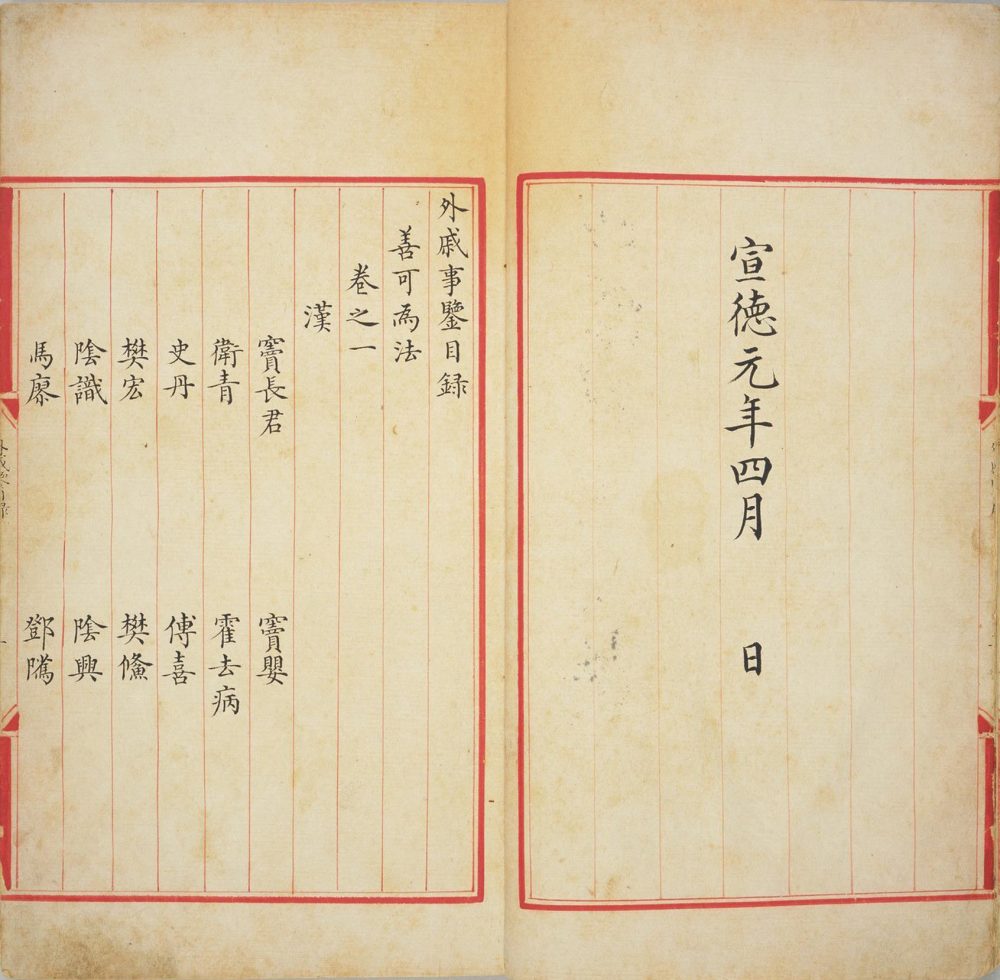 宣徳元年四月 日
外戚事鑒目録
善可為法
卷之一
漢
竇長君 竇嬰
衛青 霍去病
史丹 傅喜
樊宏 樊鯈
陰識 陰興
馬廖 鄧騭